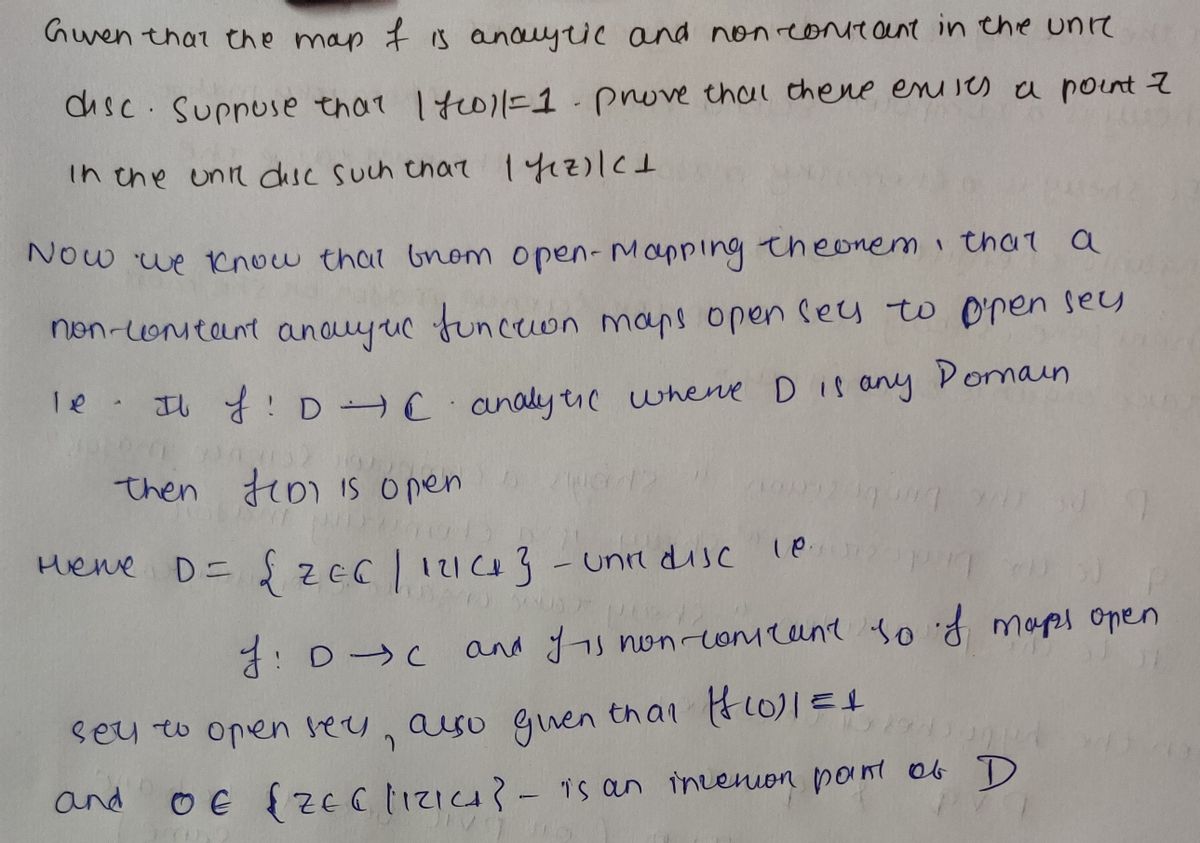 Given that the map f is analytic and non-constant in the unit
disc. Suppose that |f(0)|=1. prove that there exists a point z
in the unit disc such that |f(z)|<1
Now we know that from open-Mapping theorem, that a
non-constant analytic function maps open sets to open sets
ie. If f: D → ℂ. analytic where D is any Domain
then f(D) is open
Here D = {z∈ℂ | |z|<1} - unit disc ie.
f: D → C and f is non-constant so f maps open
sets to open sets, also given that |f(0)| = 1
and 0 ∈ {z∈ℂ | |z|<1} - is an interior point of D